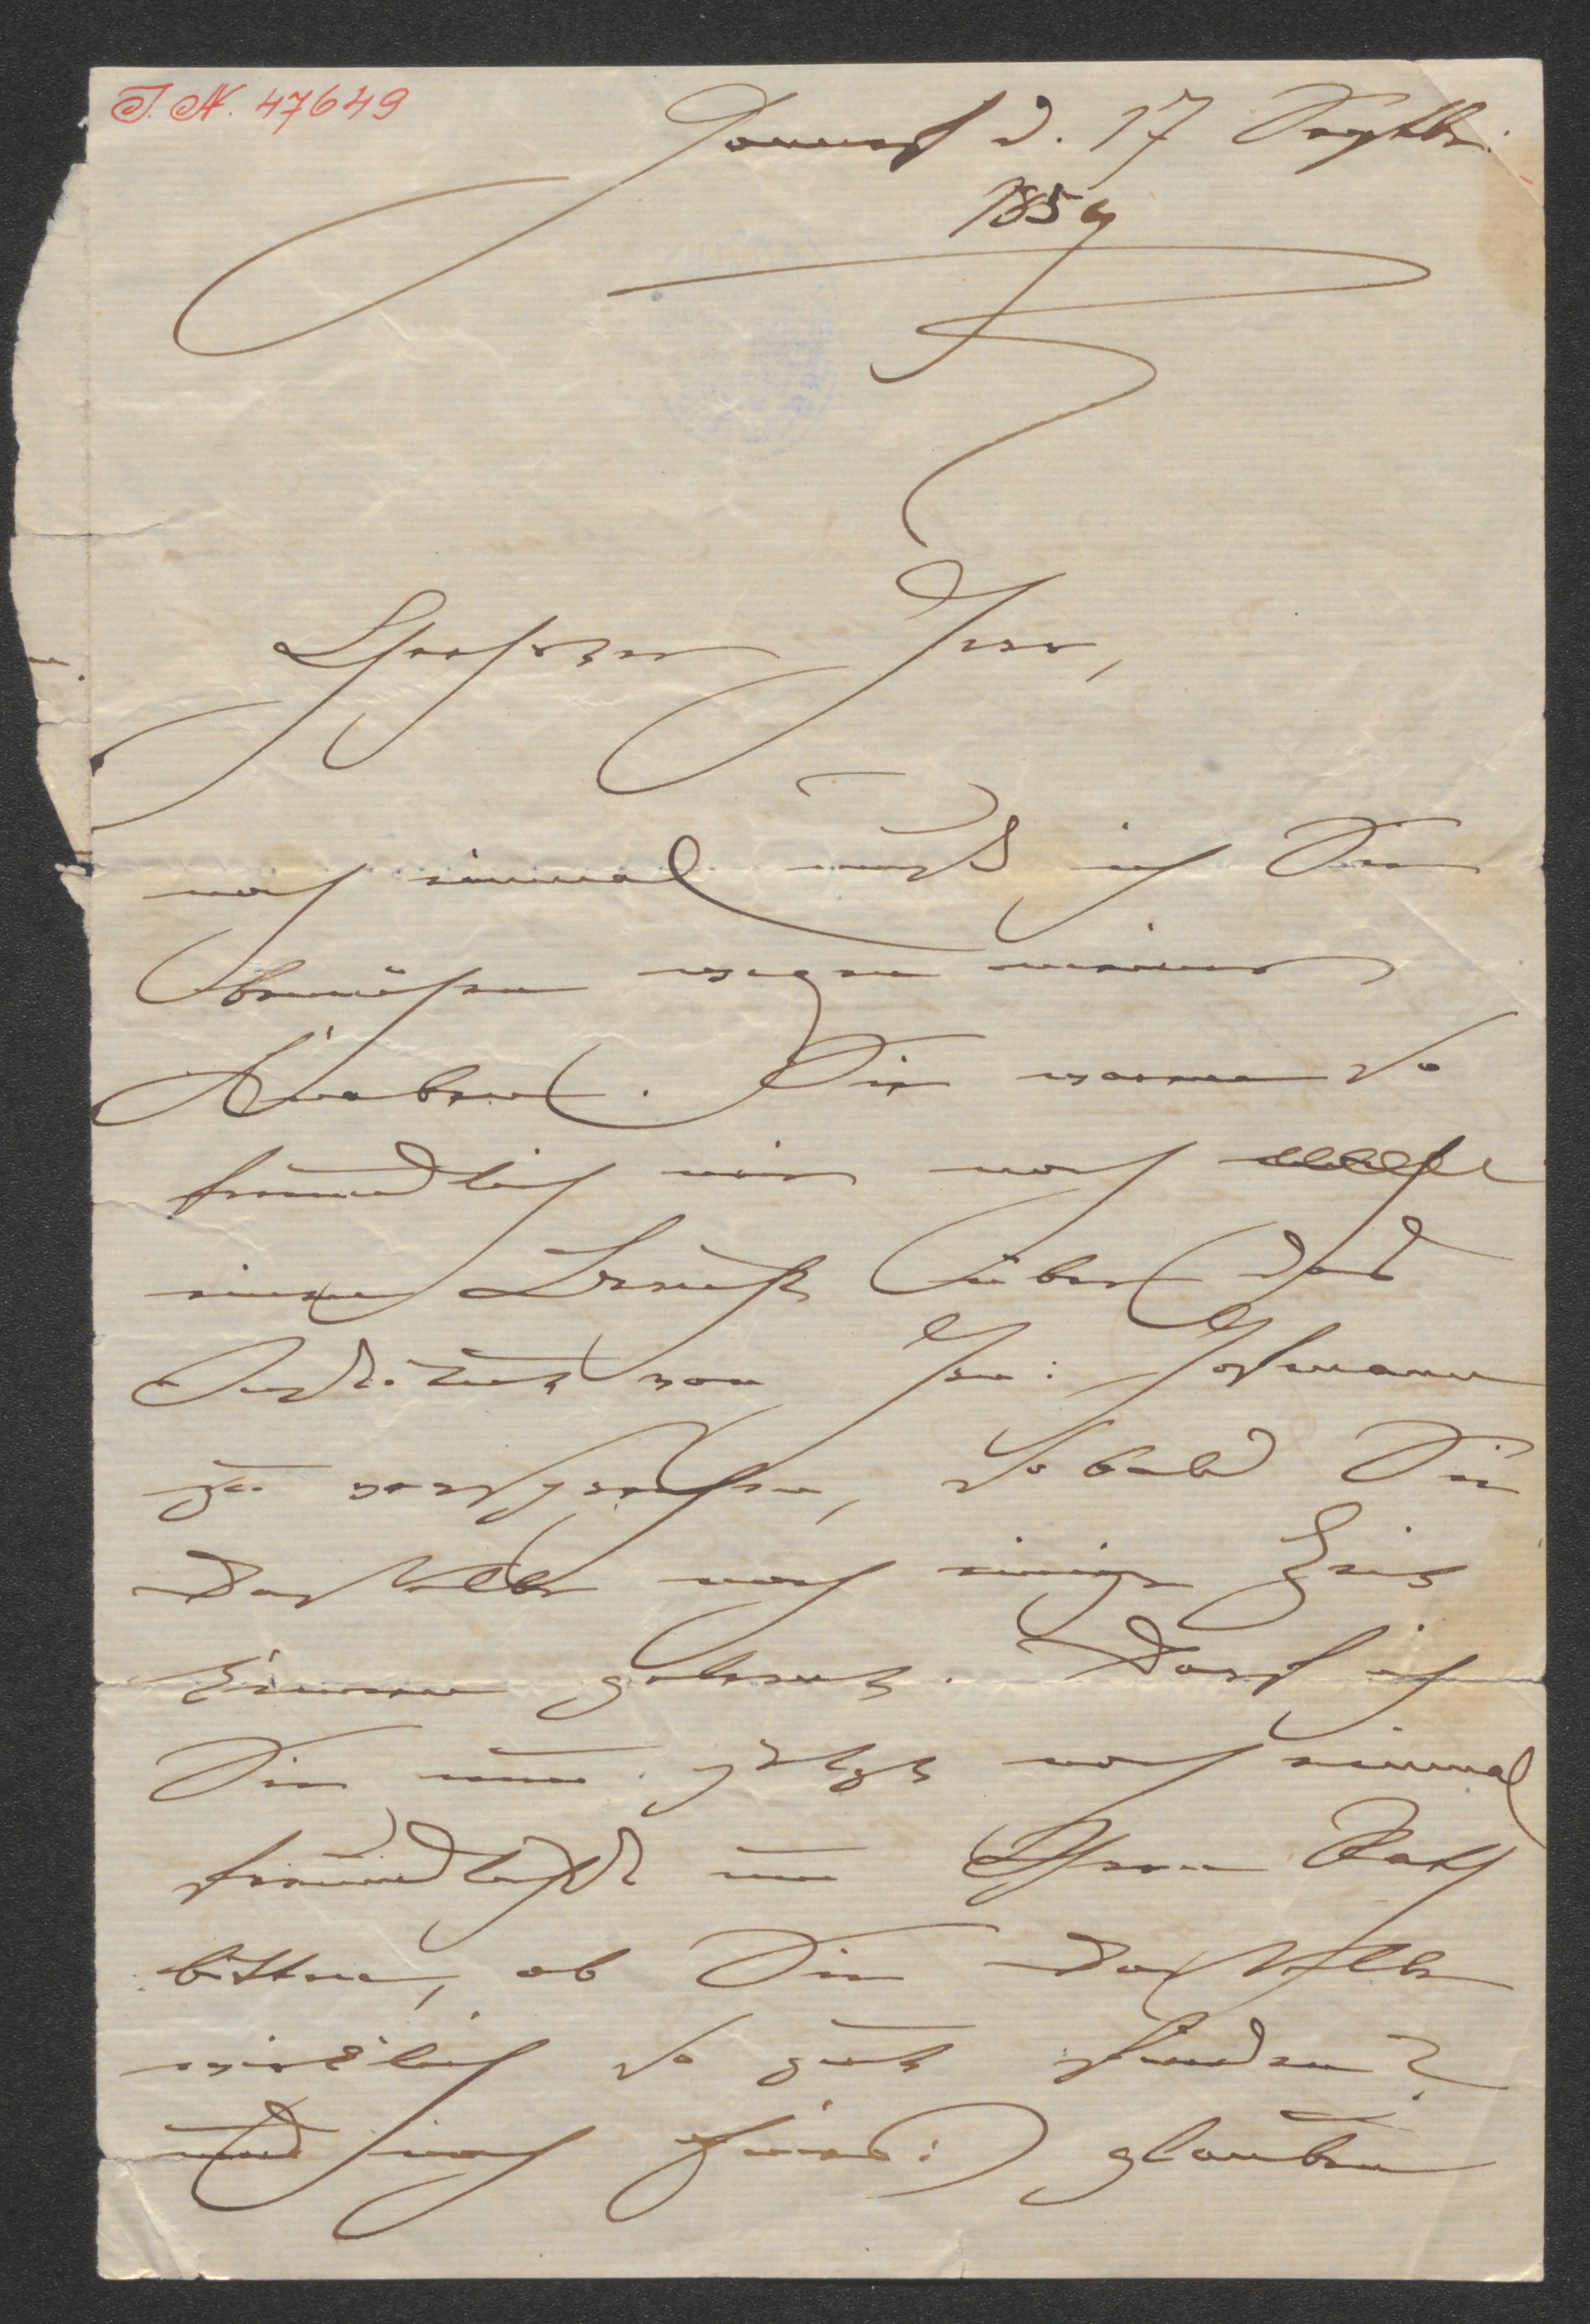 I. N. 47649
Hannov d. 17 Septbr:
1859
Geehrter Herr,
noch einmal muß ich Sie
bemühen wegen meines
Knaben. Sie waren so
freundlich mir noch
einen Bericht über das
Institut von Hrn: Hofmann
zu versprechen, sobald Sie
dasselbe noch einige Zeit
kennen gelernt. Darf ich
Sie nun jetzt noch einmal
freundlichst um Ihren Rath
bitten, ob Sie dasselbe
wirklich so gut finden?
und noch glauben